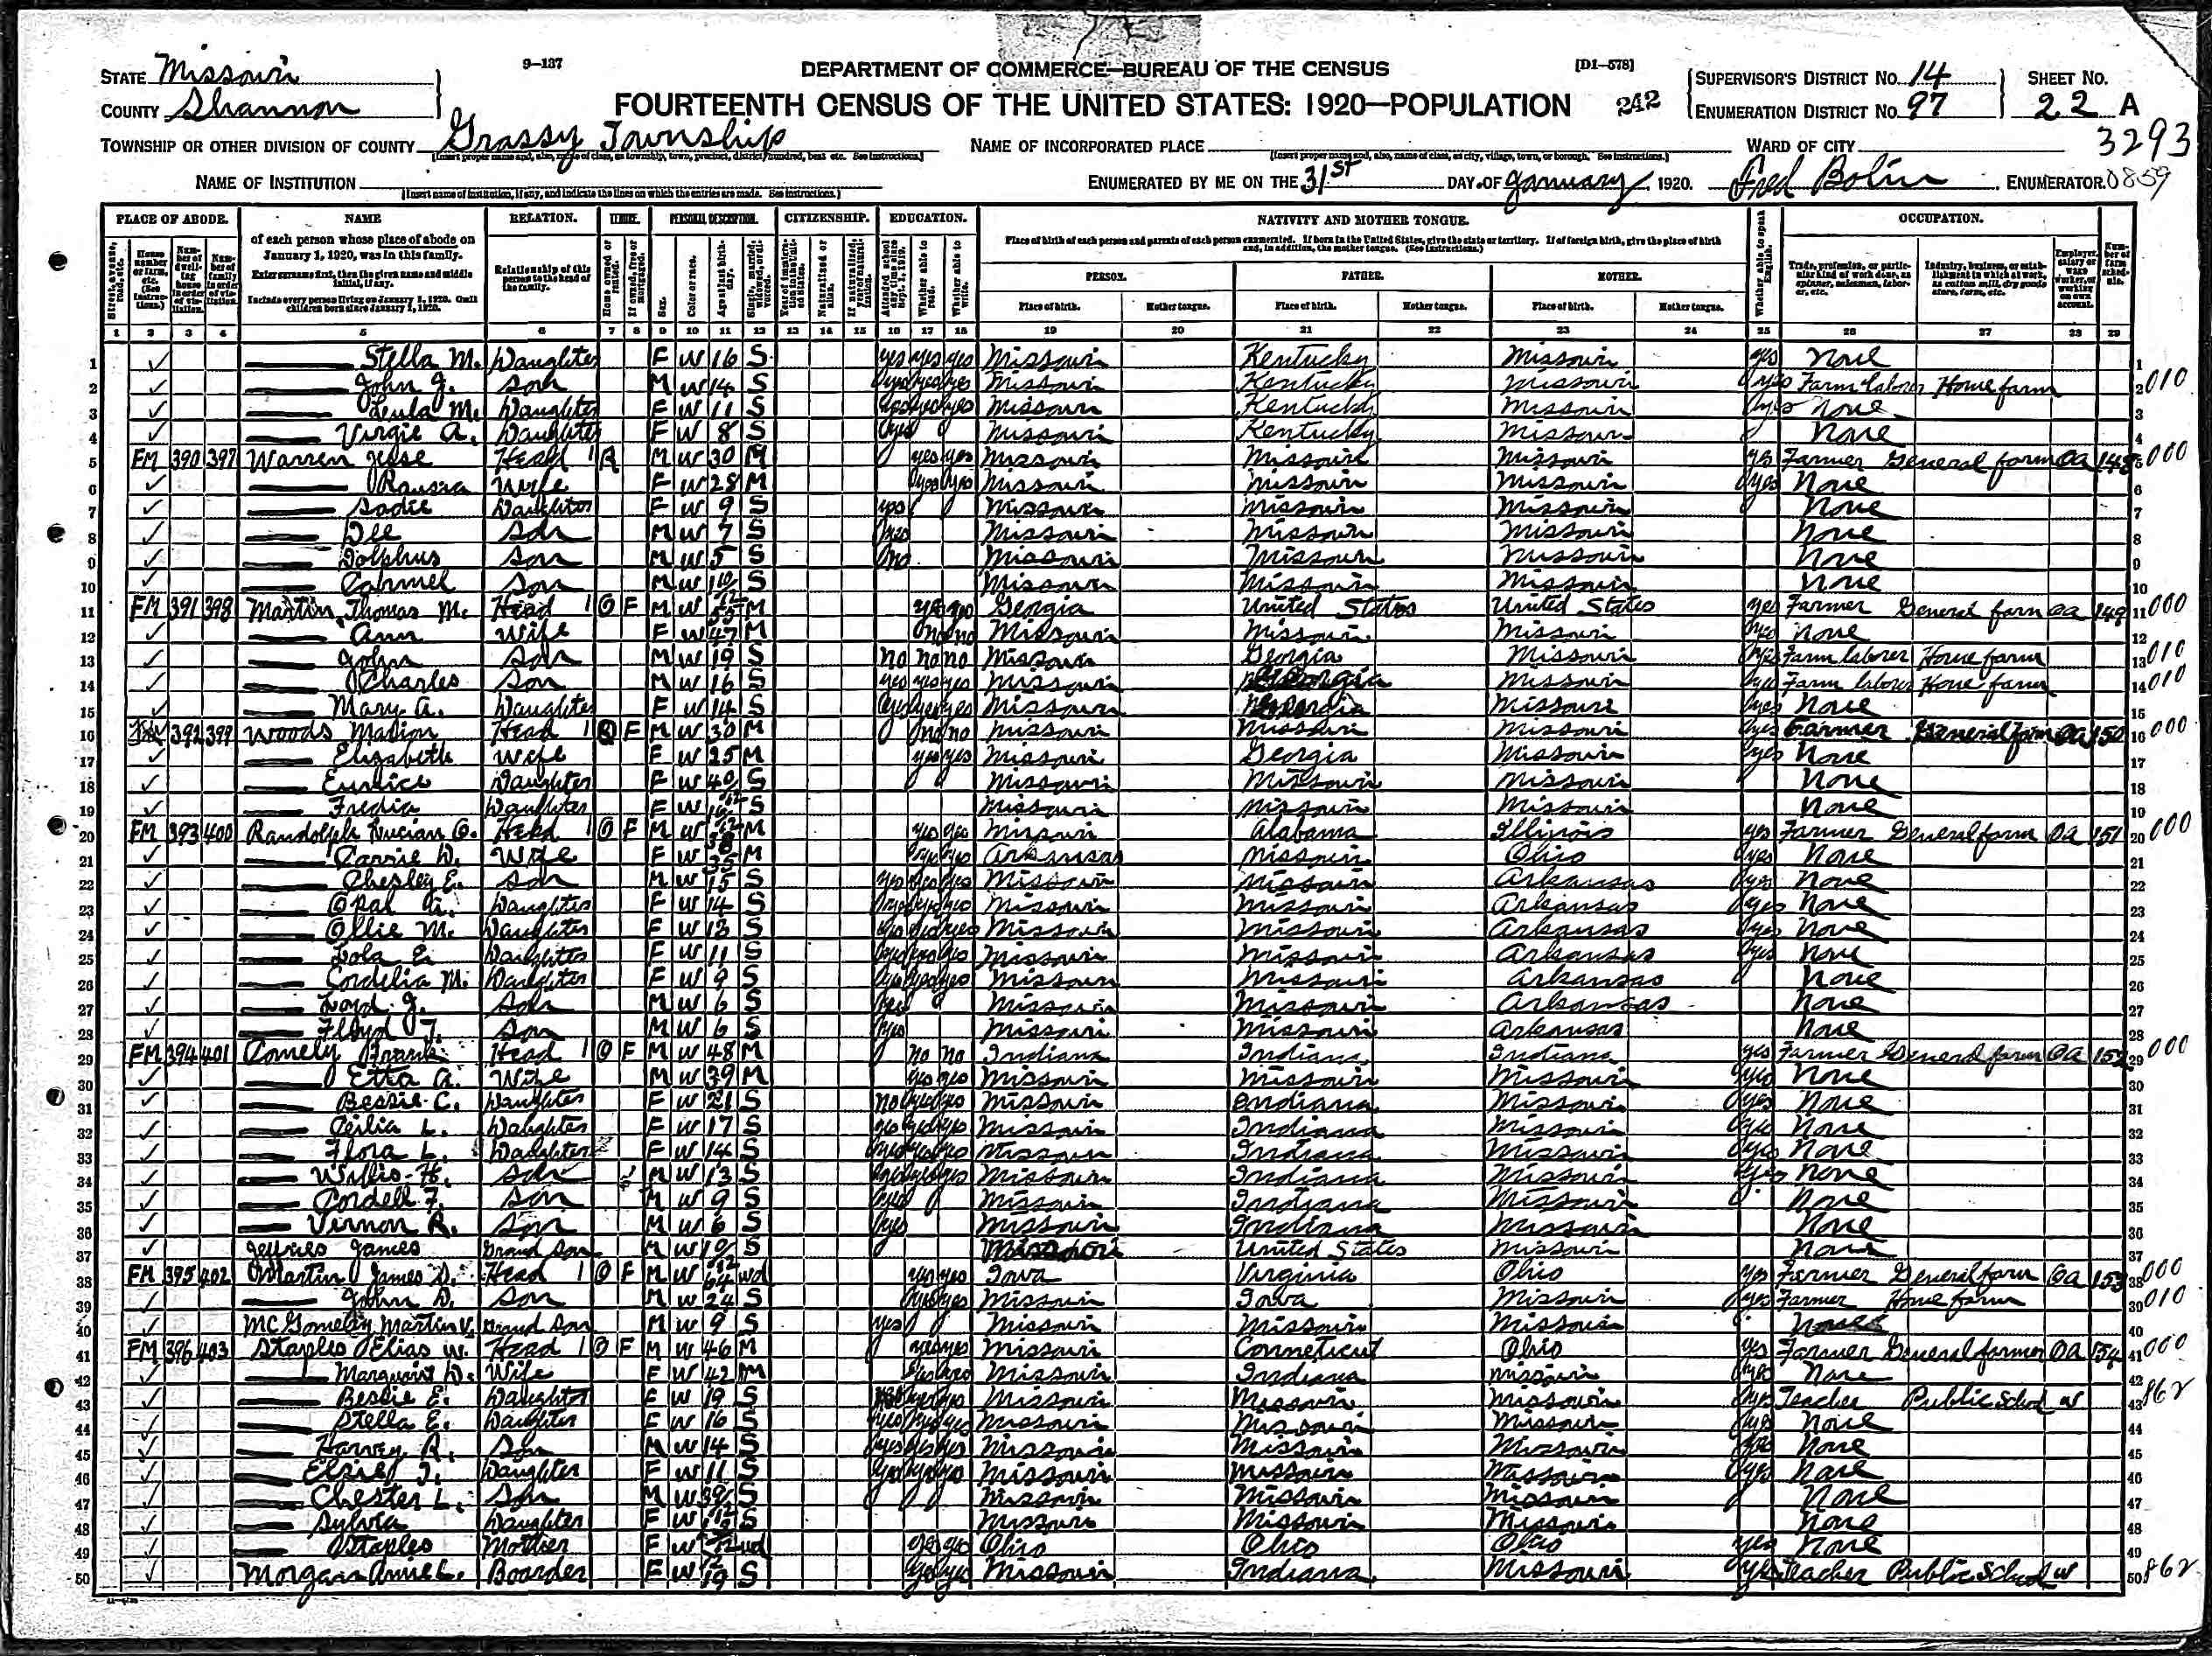 9—137
DEPARTMENT OF COMMERCE—BUREAU OF THE CENSUS
[D1—578]
STATE Missouri
COUNTY Shannon
FOURTEENTH CENSUS OF THE UNITED STATES: 1920—POPULATION
242
SUPERVISOR'S DISTRICT No. 14
ENUMERATION DISTRICT No. 97
SHEET No.
22 A
3293
TOWNSHIP OR OTHER DIVISION OF COUNTY Grassy Township
NAME OF INCORPORATED PLACE
WARD OF CITY
NAME OF INSTITUTION
ENUMERATED BY ME ON THE 31st DAY OF January, 1920. Fred Bolin ENUMERATOR. 0859
PLACE OF ABODE. NAME RELATION. TENURE. PERSONAL DESCRIPTION. CITIZENSHIP. EDUCATION. NATIVITY AND MOTHER TONGUE. OCCUPATION.
of each person whose place of abode on January 1, 1920, was in this family.
Enter surname first, then the given name and middle initial, if any.
Include every person living on January 1, 1920. Omit children born since January 1, 1920.
Relationship of this person to the head of the family.
Place of birth of each person and parents of each person enumerated. If born in the United States, give the state or territory. If of foreign birth, give the place of birth and, in addition, the mother tongue. (See instructions.)
PERSON. FATHER. MOTHER.
Place of birth. Mother tongue. Place of birth. Mother tongue. Place of birth. Mother tongue.
1 2 3 4 5 6 7 8 9 10 11 12 13 14 15 16 17 18 19 20 21 22 23 24 25 26 27 28 29
1 Stella M. Daughter F W 16 S yes yes yes Missouri Kentucky Missouri yes None 1
2 John J. Son M W 14 S yes yes yes Missouri Kentucky Missouri yes Farm laborer Home farm 2 010
3 Lula M. Daughter F W 11 S yes yes yes Missouri Kentucky Missouri yes None 3
4 Virgie A. Daughter F W 8 S yes Missouri Kentucky Missouri None 4
5 FM 390 397 Warren Jesse Head 1 R M W 30 M yes yes Missouri Missouri Missouri yes Farmer General farm OA 148 5 000
6 Wife F W 28 M yes yes Missouri Missouri Missouri yes None 6
7 Sadie Daughter F W 9 S yes Missouri Missouri Missouri None 7
8 Dee Son M W 7 S yes Missouri Missouri Missouri None 8
9 Dolphus Son M W 5 S no Missouri Missouri Missouri None 9
10 Carmel Son M W S Missouri Missouri Missouri None 10
11 FM 391 398 Martin, Thomas M. Head 1 O F M W 55 M yes yes Georgia United States United States yes Farmer General farm OA 149 11 000
12 Ann Wife F W 47 M no no Missouri Missouri Missouri yes None 12
13 John Son M W 19 S no no no Missouri Georgia Missouri yes Farm laborer Home farm 13 010
14 Charles Son M W 16 S yes yes yes Missouri Georgia Missouri yes Farm laborer Home farm 14 010
15 Mary A. Daughter F W 14 S yes yes yes Missouri Georgia Missouri yes None 15
16 FM 392 399 Woods Marion Head 1 O F M W 30 M no no Missouri Missouri Missouri yes Farmer General farm OA 150 16 000
17 Elizabeth Wife F W 25 M yes yes Missouri Georgia Missouri yes None 17
18 Eunice Daughter F W S Missouri Missouri Missouri None 18
19 Fredia Daughter F W S Missouri Missouri Missouri None 19
20 FM 393 400 Randolph Lucian O. Head 1 O F M W 38 M yes yes Missouri Alabama Illinois yes Farmer General farm OA 151 20 000
21 Carrie D. Wife F W 35 M yes yes Arkansas Missouri Ohio yes None 21
22 Chesley E. Son M W 15 S yes yes yes Missouri Missouri Arkansas yes None 22
23 Opal Daughter F W 14 S yes yes yes Missouri Missouri Arkansas yes None 23
24 Ollie M. Daughter F W 13 S yes yes yes Missouri Missouri Arkansas yes None 24
25 Lola E. Daughter F W 11 S yes yes yes Missouri Missouri Arkansas yes None 25
26 Cordelia M. Daughter F W 9 S yes yes yes Missouri Missouri Arkansas None 26
27 Loyd J. Son M W 6 S yes Missouri Missouri Arkansas None 27
28 Floyd T. Son M W 6 S yes Missouri Missouri Arkansas None 28
29 FM 394 401 Conely Frank Head 1 O F M W 48 M no no Indiana Indiana Indiana yes Farmer General farm OA 152 29 000
30 Etta A. Wife M W 39 M yes yes Missouri Missouri Missouri yes None 30
31 Bessie C. Daughter F W 21 S no yes yes Missouri Indiana Missouri yes None 31
32 Cecilia L. Daughter F W 17 S yes yes yes Missouri Indiana Missouri yes None 32
33 Flora L. Daughter F W 14 S yes yes yes Missouri Indiana Missouri yes None 33
34 Willis H. Son M W 13 S yes yes yes Missouri Indiana Missouri yes None 34
35 Cordell F. Son M W 9 S yes Missouri Indiana Missouri None 35
36 Vernon R. Son M W 6 S yes Missouri Indiana Missouri None 36
37 Jeffries James Grand Son M W S Missouri United States Missouri None 37
38 FM 395 402 Martin James D. Head 1 O F M W 64 wd yes yes Iowa Virginia Ohio yes Farmer General farm OA 153 38 000
39 John D. Son M W 24 S yes yes Missouri Iowa Missouri yes Farmer Home farm 39 010
40 Martin V. Grand Son M W 9 S yes Missouri Missouri Missouri None 40
41 FM 396 403 Staples Elias W. Head 1 O F M W 46 M yes yes Missouri Conneticut Ohio yes Farmer General farmer OA 154 41 000
42 D. Wife F W 42 M yes yes Missouri Indiana Missouri yes None 42
43 Bessie E. Daughter F W 19 S yes yes Missouri Missouri Missouri yes Teacher Public School W 43 862
44 Stella E. Daughter F W 16 S yes yes yes Missouri Missouri Missouri yes None 44
45 Harvey R. Son M W 14 S yes yes yes Missouri Missouri Missouri yes None 45
46 Elsie J. Daughter F W 11 S yes yes yes Missouri Missouri Missouri yes None 46
47 Chester L. Son M W S Missouri Missouri Missouri None 47
48 Sylvia Daughter F W S Missouri Missouri Missouri None 48
49 Staples Mother F W wd yes yes Ohio Ohio Ohio yes None 49
50 Morgan Annie L. Boarder F W 19 S yes yes Missouri Indiana Missouri yes Teacher Public School W 50 862